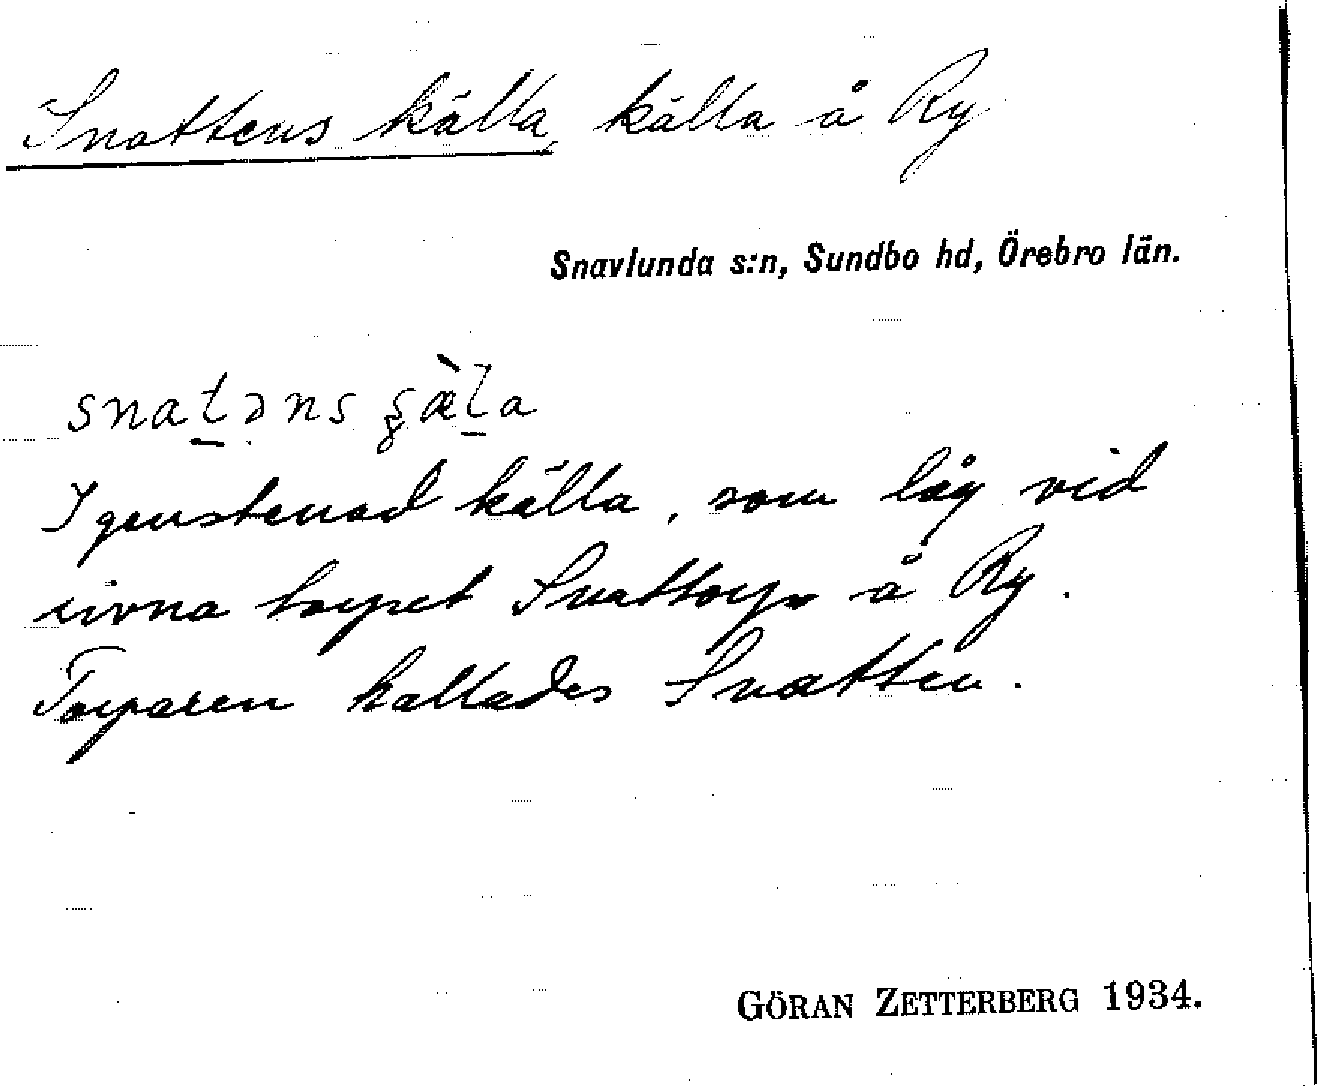 Snattens källa, källa å Ry
Snavlunda s:n, Sundbo hd, Örebro län.
snat̲əns ʂæ̀l̲a
Igenstenad källa, som låg vid
rivna torpet Snattorp å Ry.
Torparen kallades Snatten.
GÖRAN ZETTERBERG 1934.